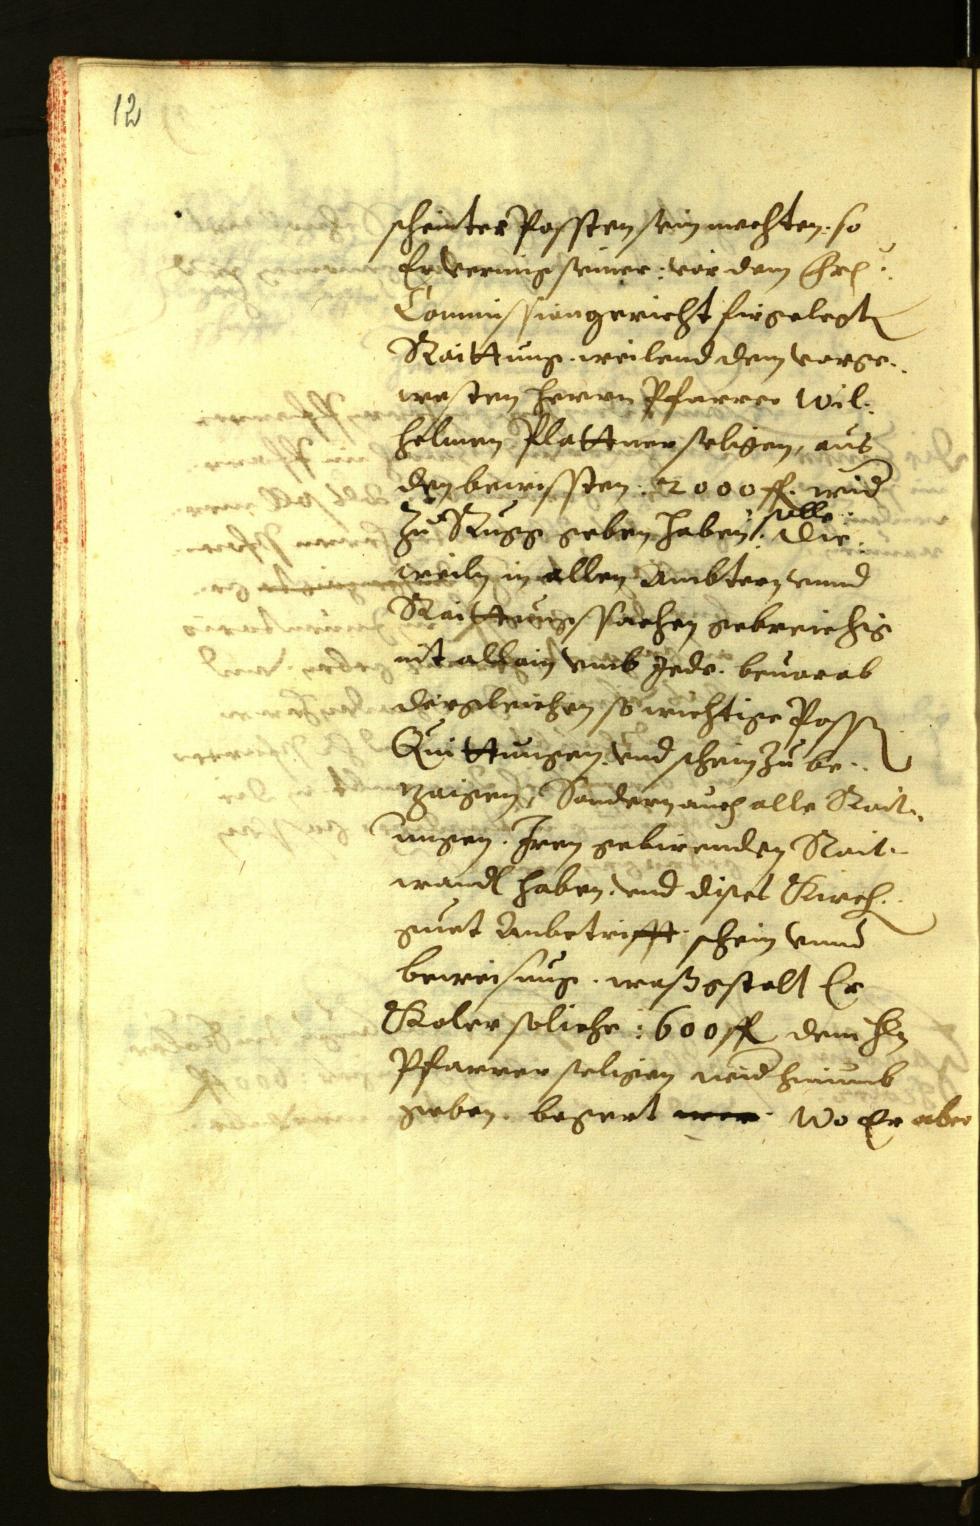 12
scheinter Possten sein mechten. so
Er vermig seiner: vor dem Ehrs:
Commissiongericht firgelegte
Raittung. weilend dem vorge..
westen herrn Pfarrer Wil:
helmen Plattner seligen, aus
den bewissten: 2000 fl. wid
zu Rugg geben haben: solle. die:
weiln in allen Ambtern vnnd
Raittungssachen gebreichig
nit allain vmb Jede. beuorab
dergleichen so wichtige Posst
Quittungen. vnd schein zu be..
zaigen, Sondern auch alle Rait..
ungen. Iren gebirenden Rait..
wandl haben. vnd diset Kirch..
guet Anbetrifft. schein vnnd
beweisung. waßgstalt Er
Koler soliche: 600 fl dem hrn
Pfarrer seligen wid hinumb
geben. begert Wo Er aber